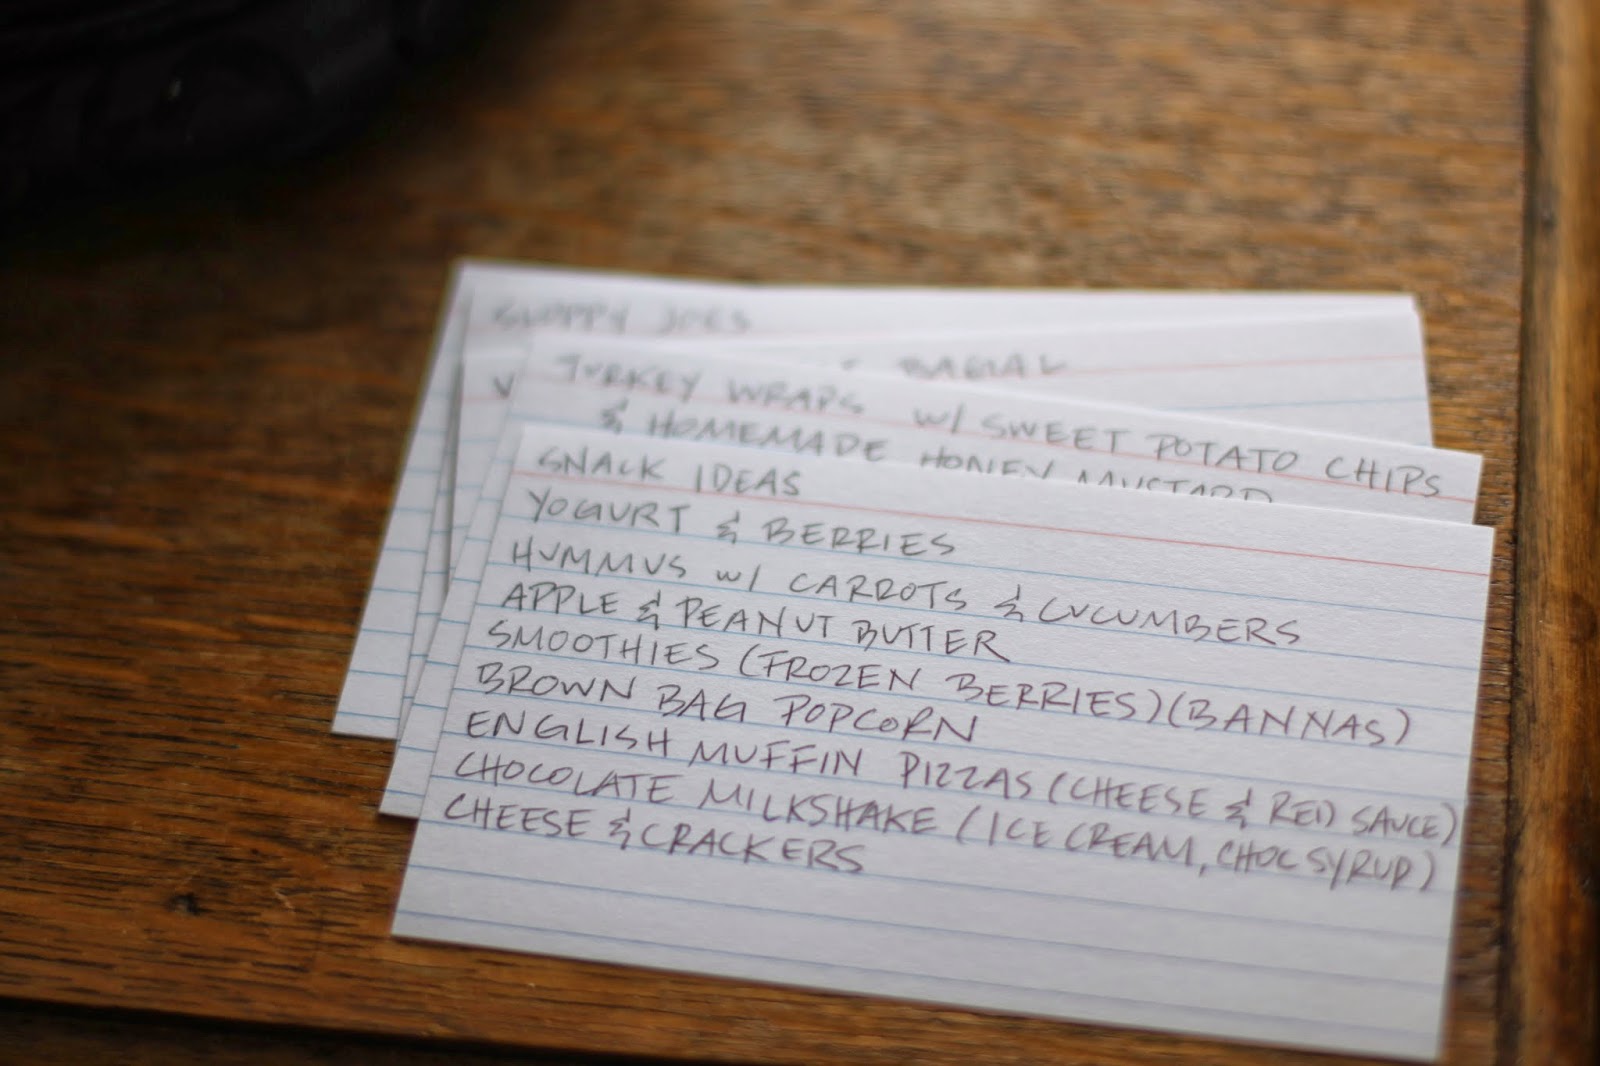 SLOPPY JOES
V
BAGEL
TURKEY WRAPS W/ SWEET POTATO CHIPS
& HOMEMADE HONEY MUSTARD
SNACK IDEAS
YOGURT & BERRIES
HUMMUS W/ CARROTS & CUCUMBERS
APPLE & PEANUT BUTTER
SMOOTHIES (FROZEN BERRIES) (BANNAS)
BROWN BAG POPCORN
ENGLISH MUFFIN PIZZAS (CHEESE & RED SAUCE)
CHOCOLATE MILKSHAKE (ICE CREAM, CHOC SYRUP)
CHEESE & CRACKERS